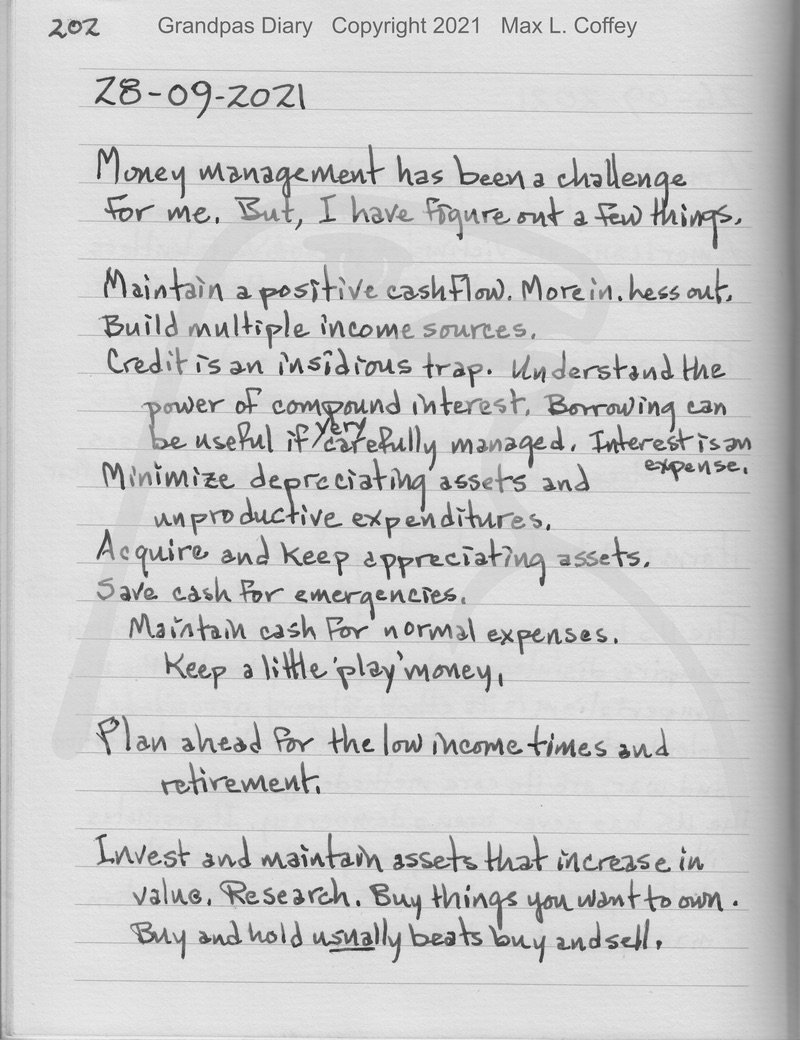 202 Grandpas Diary Copyright 2021 Max L. Coffey
28-09-2021
Money management has been a challenge
for me. But, I have figure out a few things.
Maintain a positive cashflow. More in. Less out.
Build multiple income sources.
Credit is an insidious trap. Understand the
power of compound interest. Borrowing can
be useful if very carefully managed. Interest is an
expense.
Minimize depreciating assets and
unproductive expenditures.
Acquire and keep appreciating assets.
Save cash for emergencies.
Maintain cash for normal expenses.
Keep a little 'play' money.
Plan ahead for the low income times and
retirement.
Invest and maintain assets that increase in
value. Research. Buy things you want to own.
Buy and hold usually beats buy and sell.